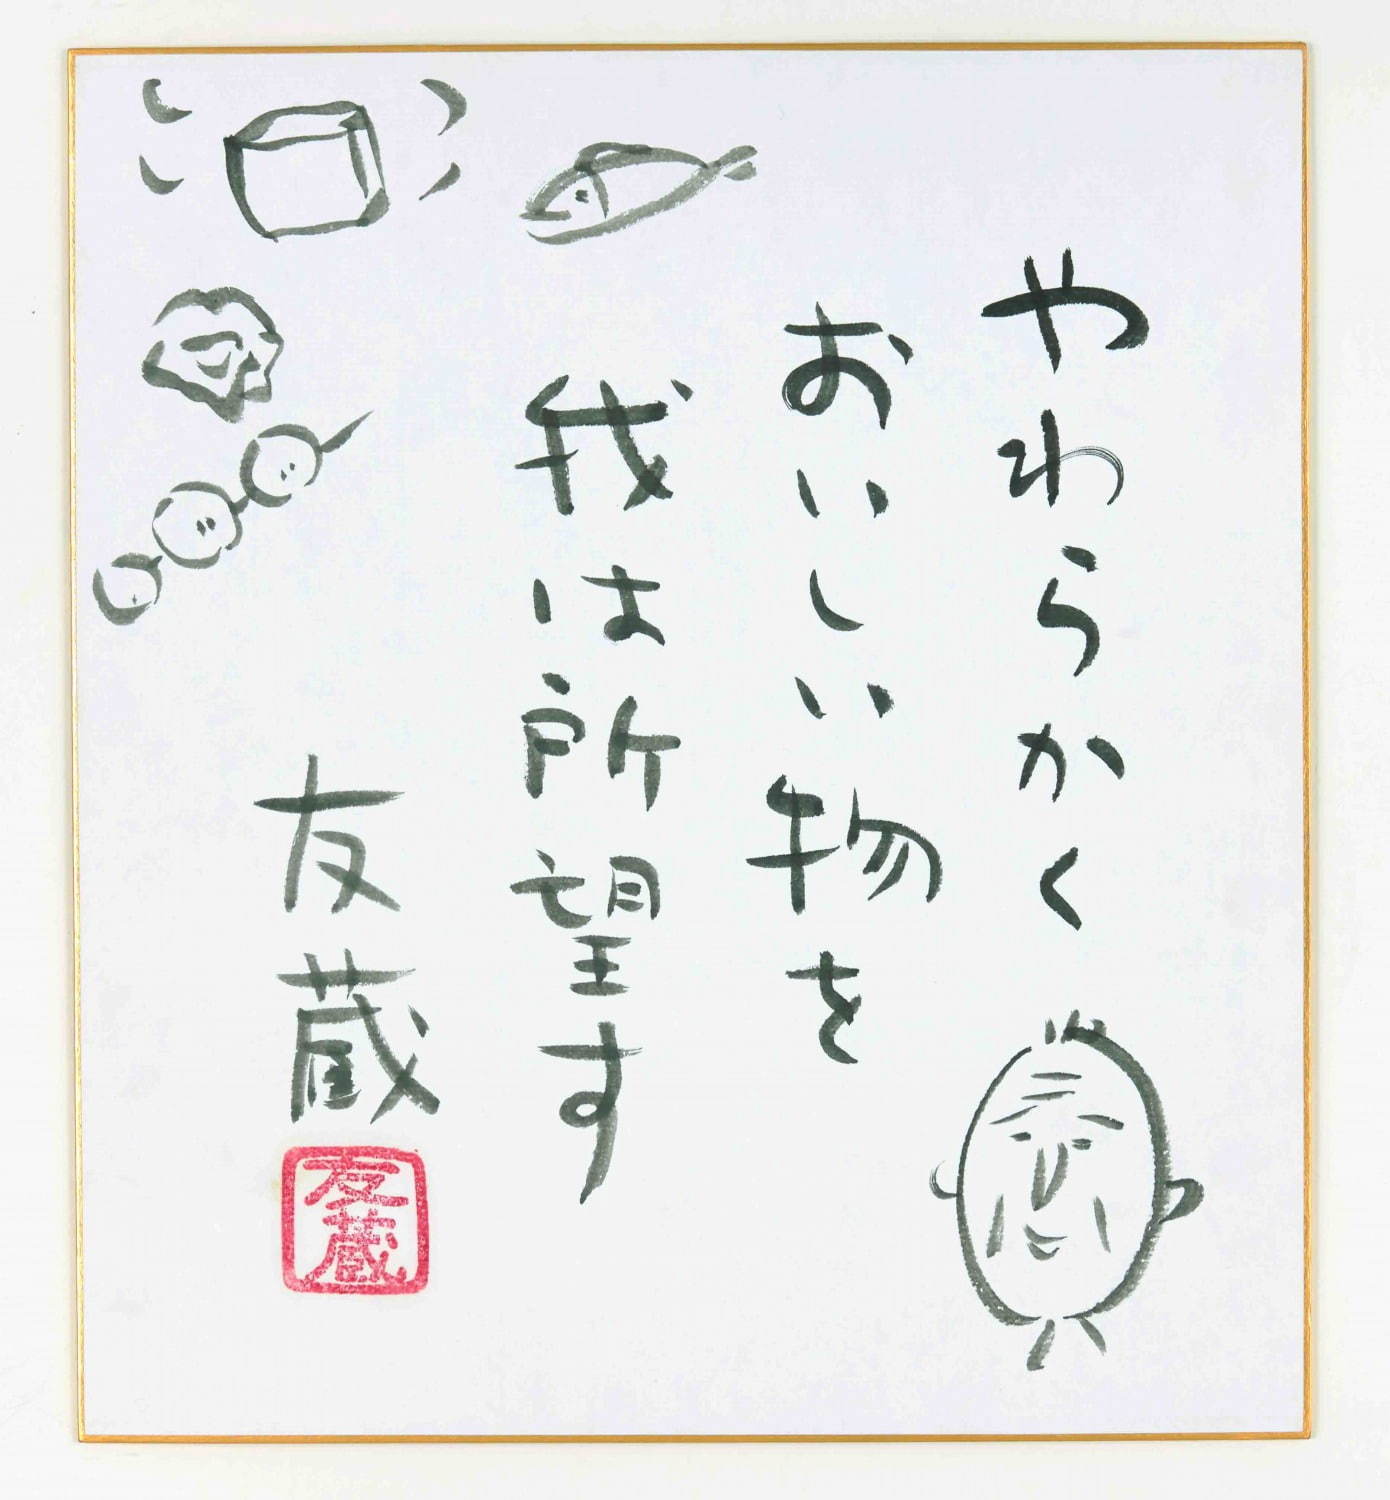 やわらかく
おいしい物を
我は所望す
友蔵
友蔵